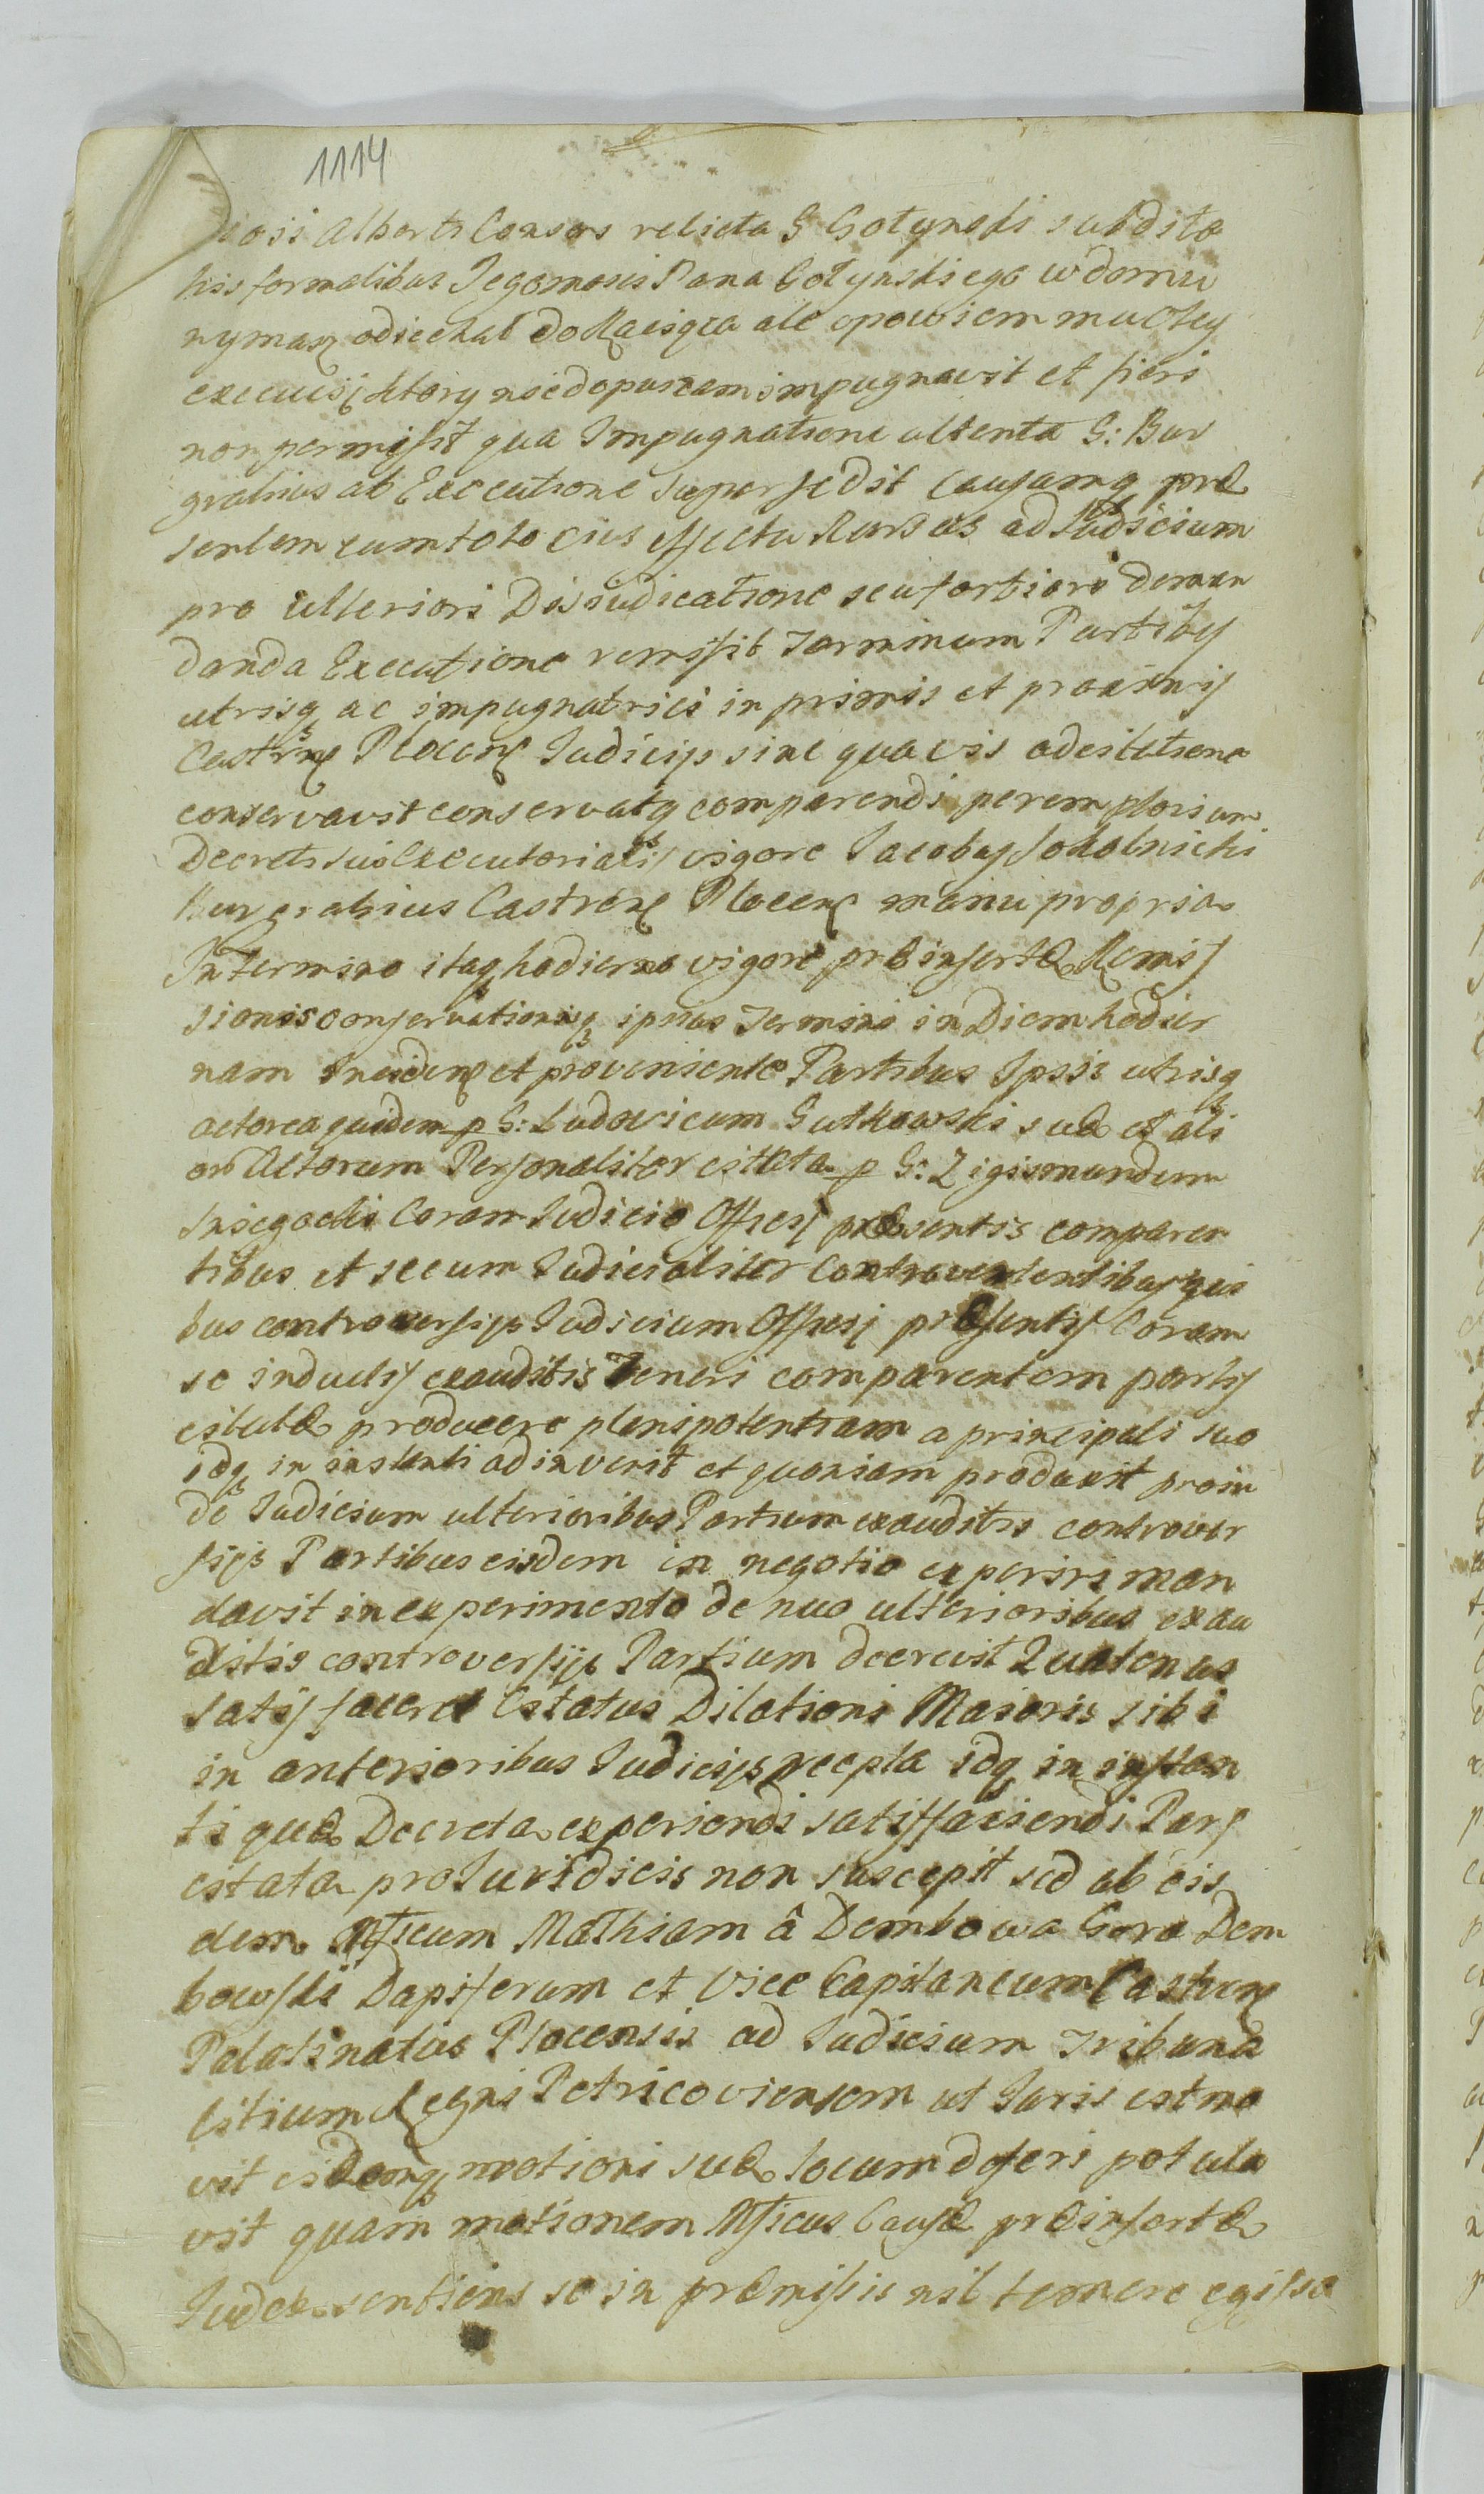 1114
iosi Alberti Consors relicta G Gotynski subdita
his formalibus Jegomosci Pana Gotynskiego w domu
nymasz odiechal do Raciąza ale opowiem mu o tey
execucij ktory nie dopuszcam impugnavit et fieri
non permisit qua Impugnatione attenta G: Bur
grabius ab Executione supersedit causamq præ
sentem cum toto eius effectu Rursus ad Iudicium
pro ulteriori Disiudicatione seu fortiori deman
danda Executione remisit Terminum Partiby
utrisq ac impugnatrici in primis et proximis
Castren Plocen Iudicijs sine quavis adcitatione
conservavit conservatq comparendi peremptorium
Decreti sui Executorialis vigore Iacobus Sokolnicki
Burgrabius Castren Plocen manu propria
In Termino itaq hodierno vigore præinsertæ Remis
sionis conservationisq ipsius Termini in Diem hodier
nam inciden et proveniente Partibus Ipsis utrisq
actorea quidem p G: Ludovicum Gutkowski suæ et ali
or Actorum Personaliter citata p G: Zigismundum
coram Iudicio Officij præsentis comparen
tibus et secum Iudicialiter controvertentibus qui
bus controversijs Iudicium Officij præsentis Coram
se inductis exauditis Teneri comparentem partis
citatæ producere plenipotentiam a principali suo
idq in instanti adinvenit et quoniam produxit proin
de Iudicium ulterioribus Partium exauditis controver
sijs Partibus eisdem in negotio experiri man
davit in experimento de nuo ulterioribus exau
ditis controversijs Partium decrevit Quatenus
satisfaceret Citatus Dilationi Maioris sibi
in anterioribus Iudicijs recepta idq in instan
ti quæ Decreta experiendi satisfaciendi Pars
citata pro Iuridicis non suscepit sed ab eis
dem Mficum Mathiam â Dembowa Gora Dem
bowski Dapiferum et Vice Capitaneum Castren
Palatinatus Plocensis ad Iudicium Tribuna
litium Regni Petricoviensem ut Iuris est mo
vit eidemq motioni suæ locum deferi postula
vit quam motionem Mficus Causæ præinsertæ
Iudex sentiens se in præmissis nil temere egisse